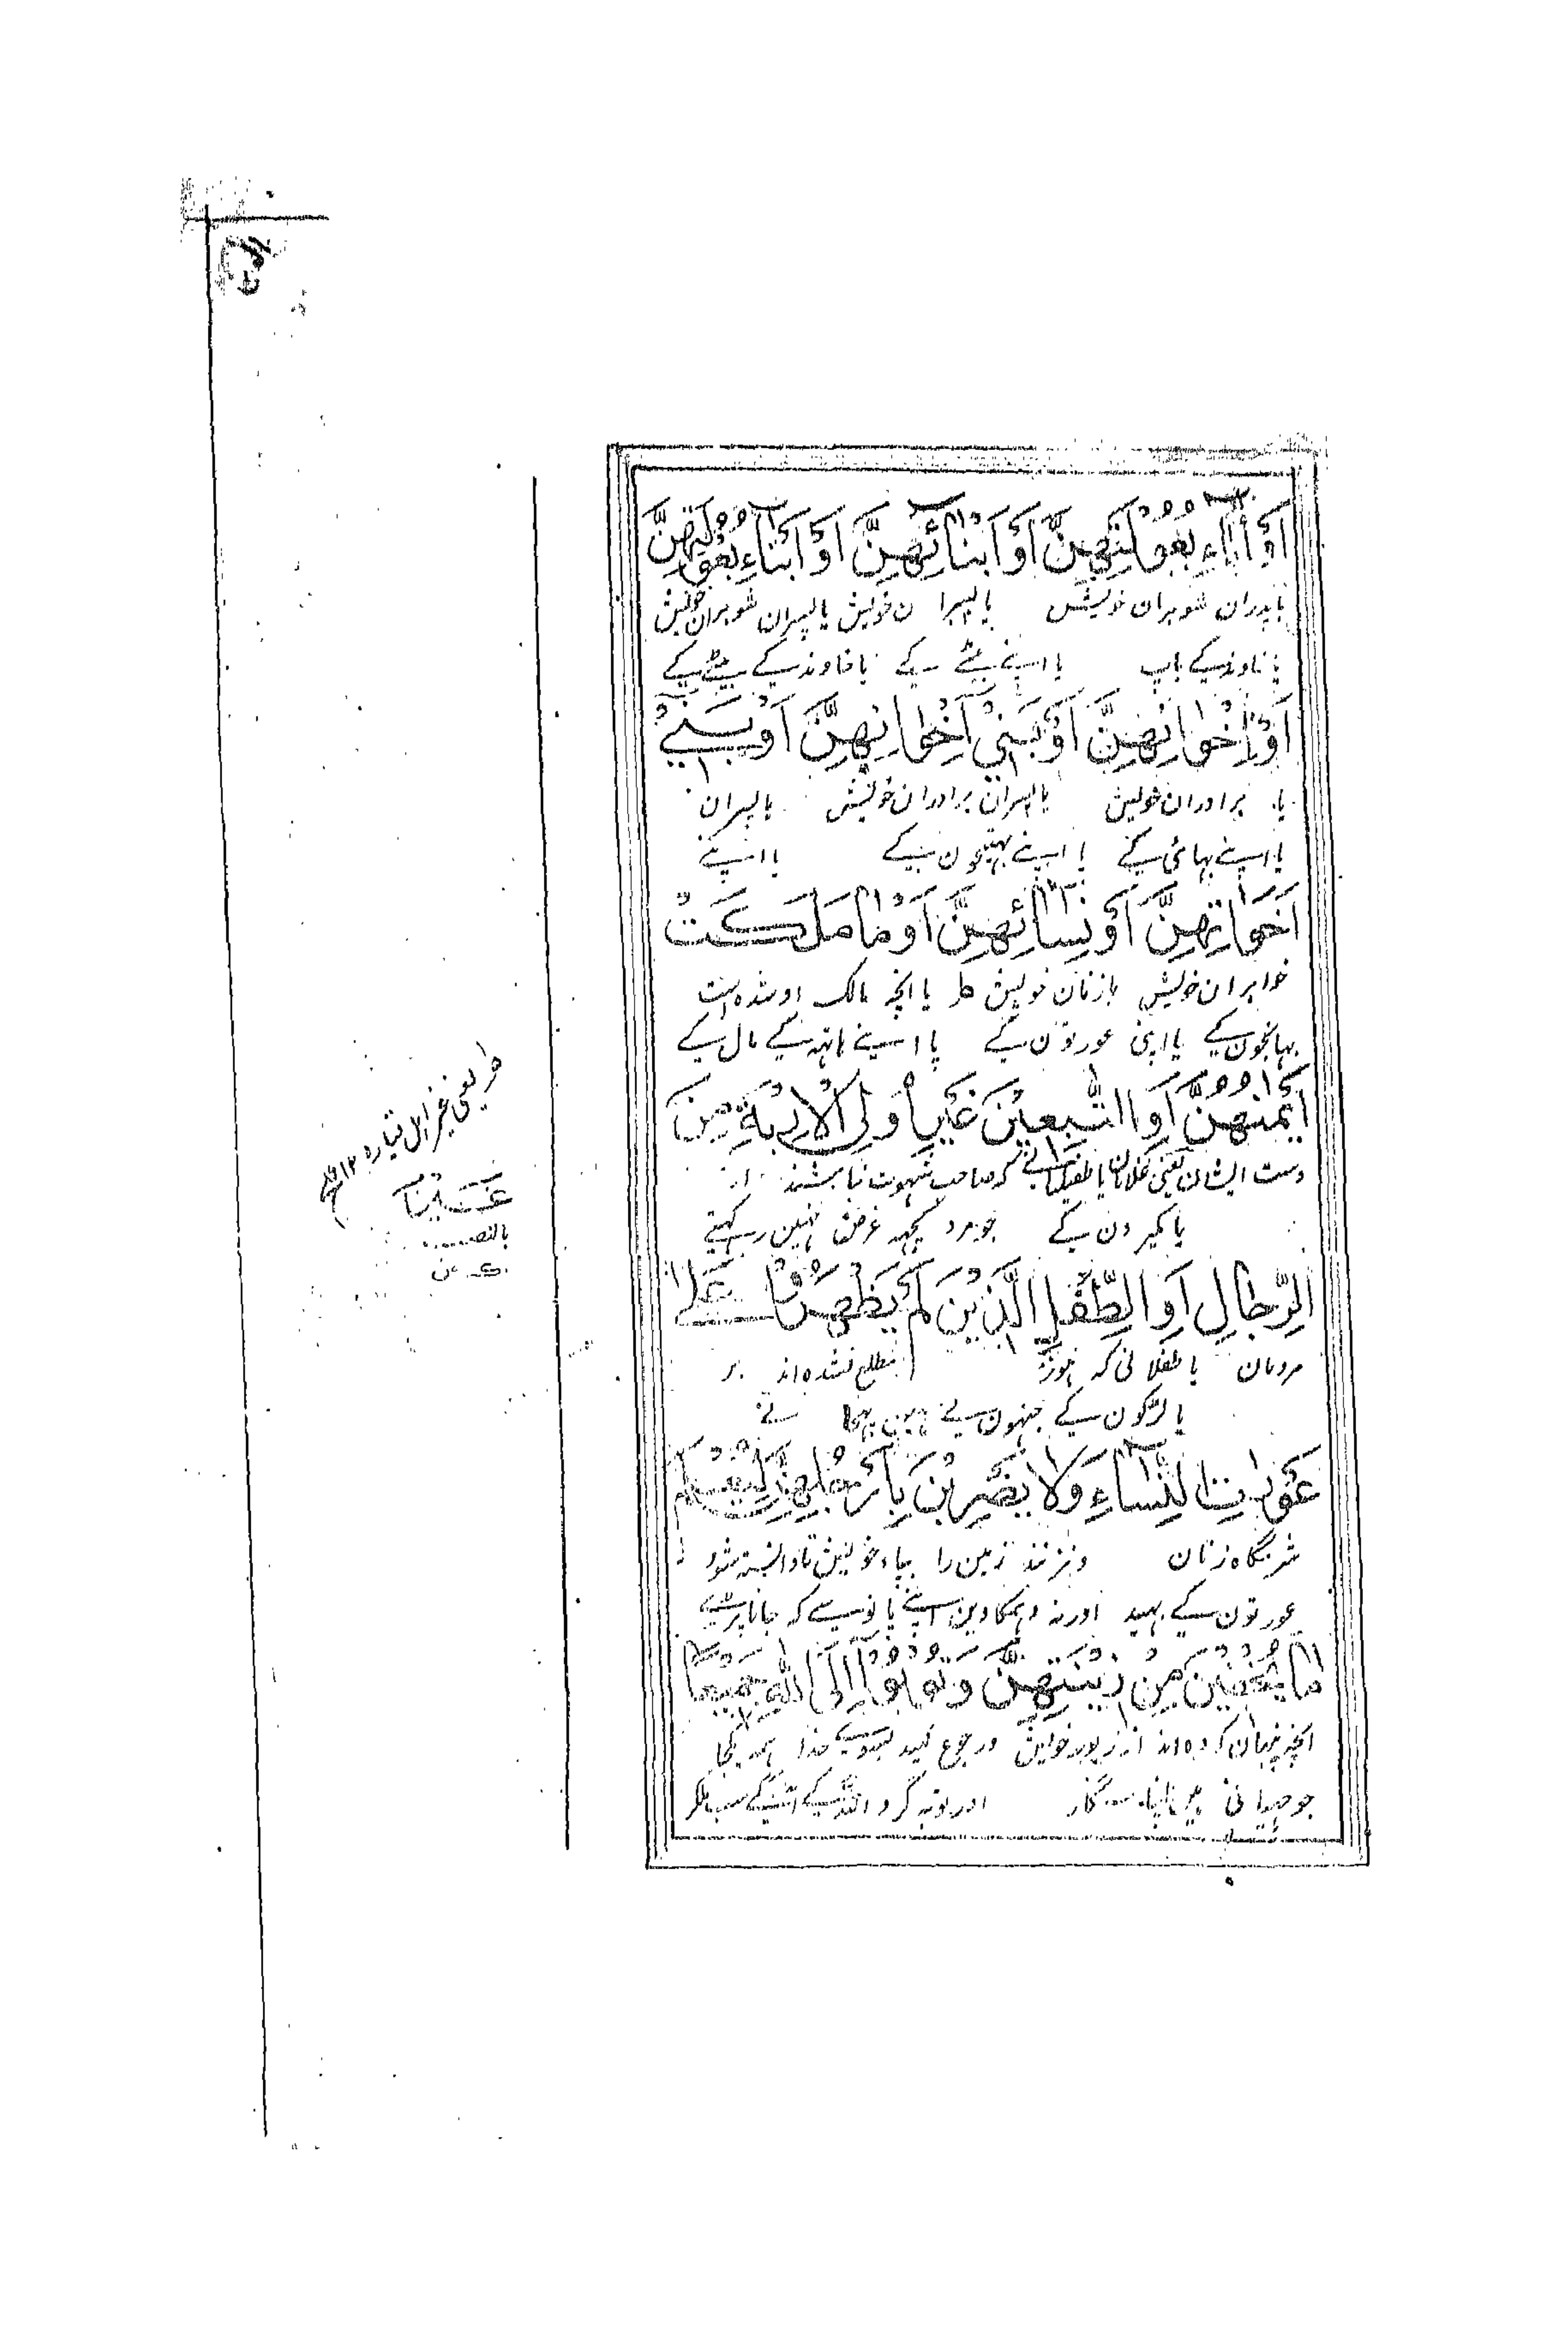 اَوْ اٰبَآءِ بُعُوْلَتِهِنَّ اَوْ اَبْنَآئِهِنَّ اَوْ اَبْنَآءِ بُعُوْلَتِهِنَّ
یا پدران شوہران خویش یا پسران خویش یا پسران شوہران خویش
یا خاوند کے باپ یا اپنے بیٹے کے یا خاوند کے بیٹے کے
اَوْ اِخْوَانِهِنَّ اَوْ بَنِيْ اِخْوَانِهِنَّ اَوْ بَنِيْ
یا برادران خویش یا پسران برادران خویش یا پسران
یا اپنے بہائی کے یا اپنے بہتیجون کے یا اپنے
اَخَوَاتِهِنَّ اَوْ نِسَآئِهِنَّ اَوْ مَا مَلَكَتْ
خواہران خویش یا زنان خویش ط یا انچہ مالک او شدہ است
بہانجون کے یا اپنی عورتون کے یا اپنے ہاتہ کے مال کے
اَيْمٰنُهُنَّ اَوِ التّٰبِعِيْنَ غَيْرِ اُولِي الْاِرْبَةِ مِنَ
دست ایشان یعنی غلامان یا طفیلیانے کہ صاحب شہوت نباشند از
یا کمیرون کے جو مرد کچہہ غرض نہین رکہتے
الرِّجَالِ اَوِ الطِّفْلِ الَّذِيْنَ لَمْ يَظْهَرُوْا عَلٰى
مردمان یا طفلانی کہ ہنوز مطلع نشدہ اند بر
یا لڑکون کے جنہون نے نہین پہچانے
عَوْرَاتِ النِّسَآءِ وَلَا يَضْرِبْنَ بِاَرْجُلِهِنَّ لِيُعْلَمَ
شرمگاہ زنان و نزنند زمین را بپاء خویش تا دانستہ شود
عورتون کے بہید اور نہ دہمکاوین اپنے پانو سے کہ جانا پڑے
مَا يُخْفِيْنَ مِنْ زِيْنَتِهِنَّ وَتُوْبُوْٓا اِلَى اللّٰهِ جَمِيْعًا
انچہ پنہان کردہ اند از زیور خویش و رجوع کنید بسوے خدا ہمہ یکجا
جو چہپاتی ہین اپنا سنگار اور توبہ کرو اللہ کے آگے سب ملکر
ط یعنی غیر اہل